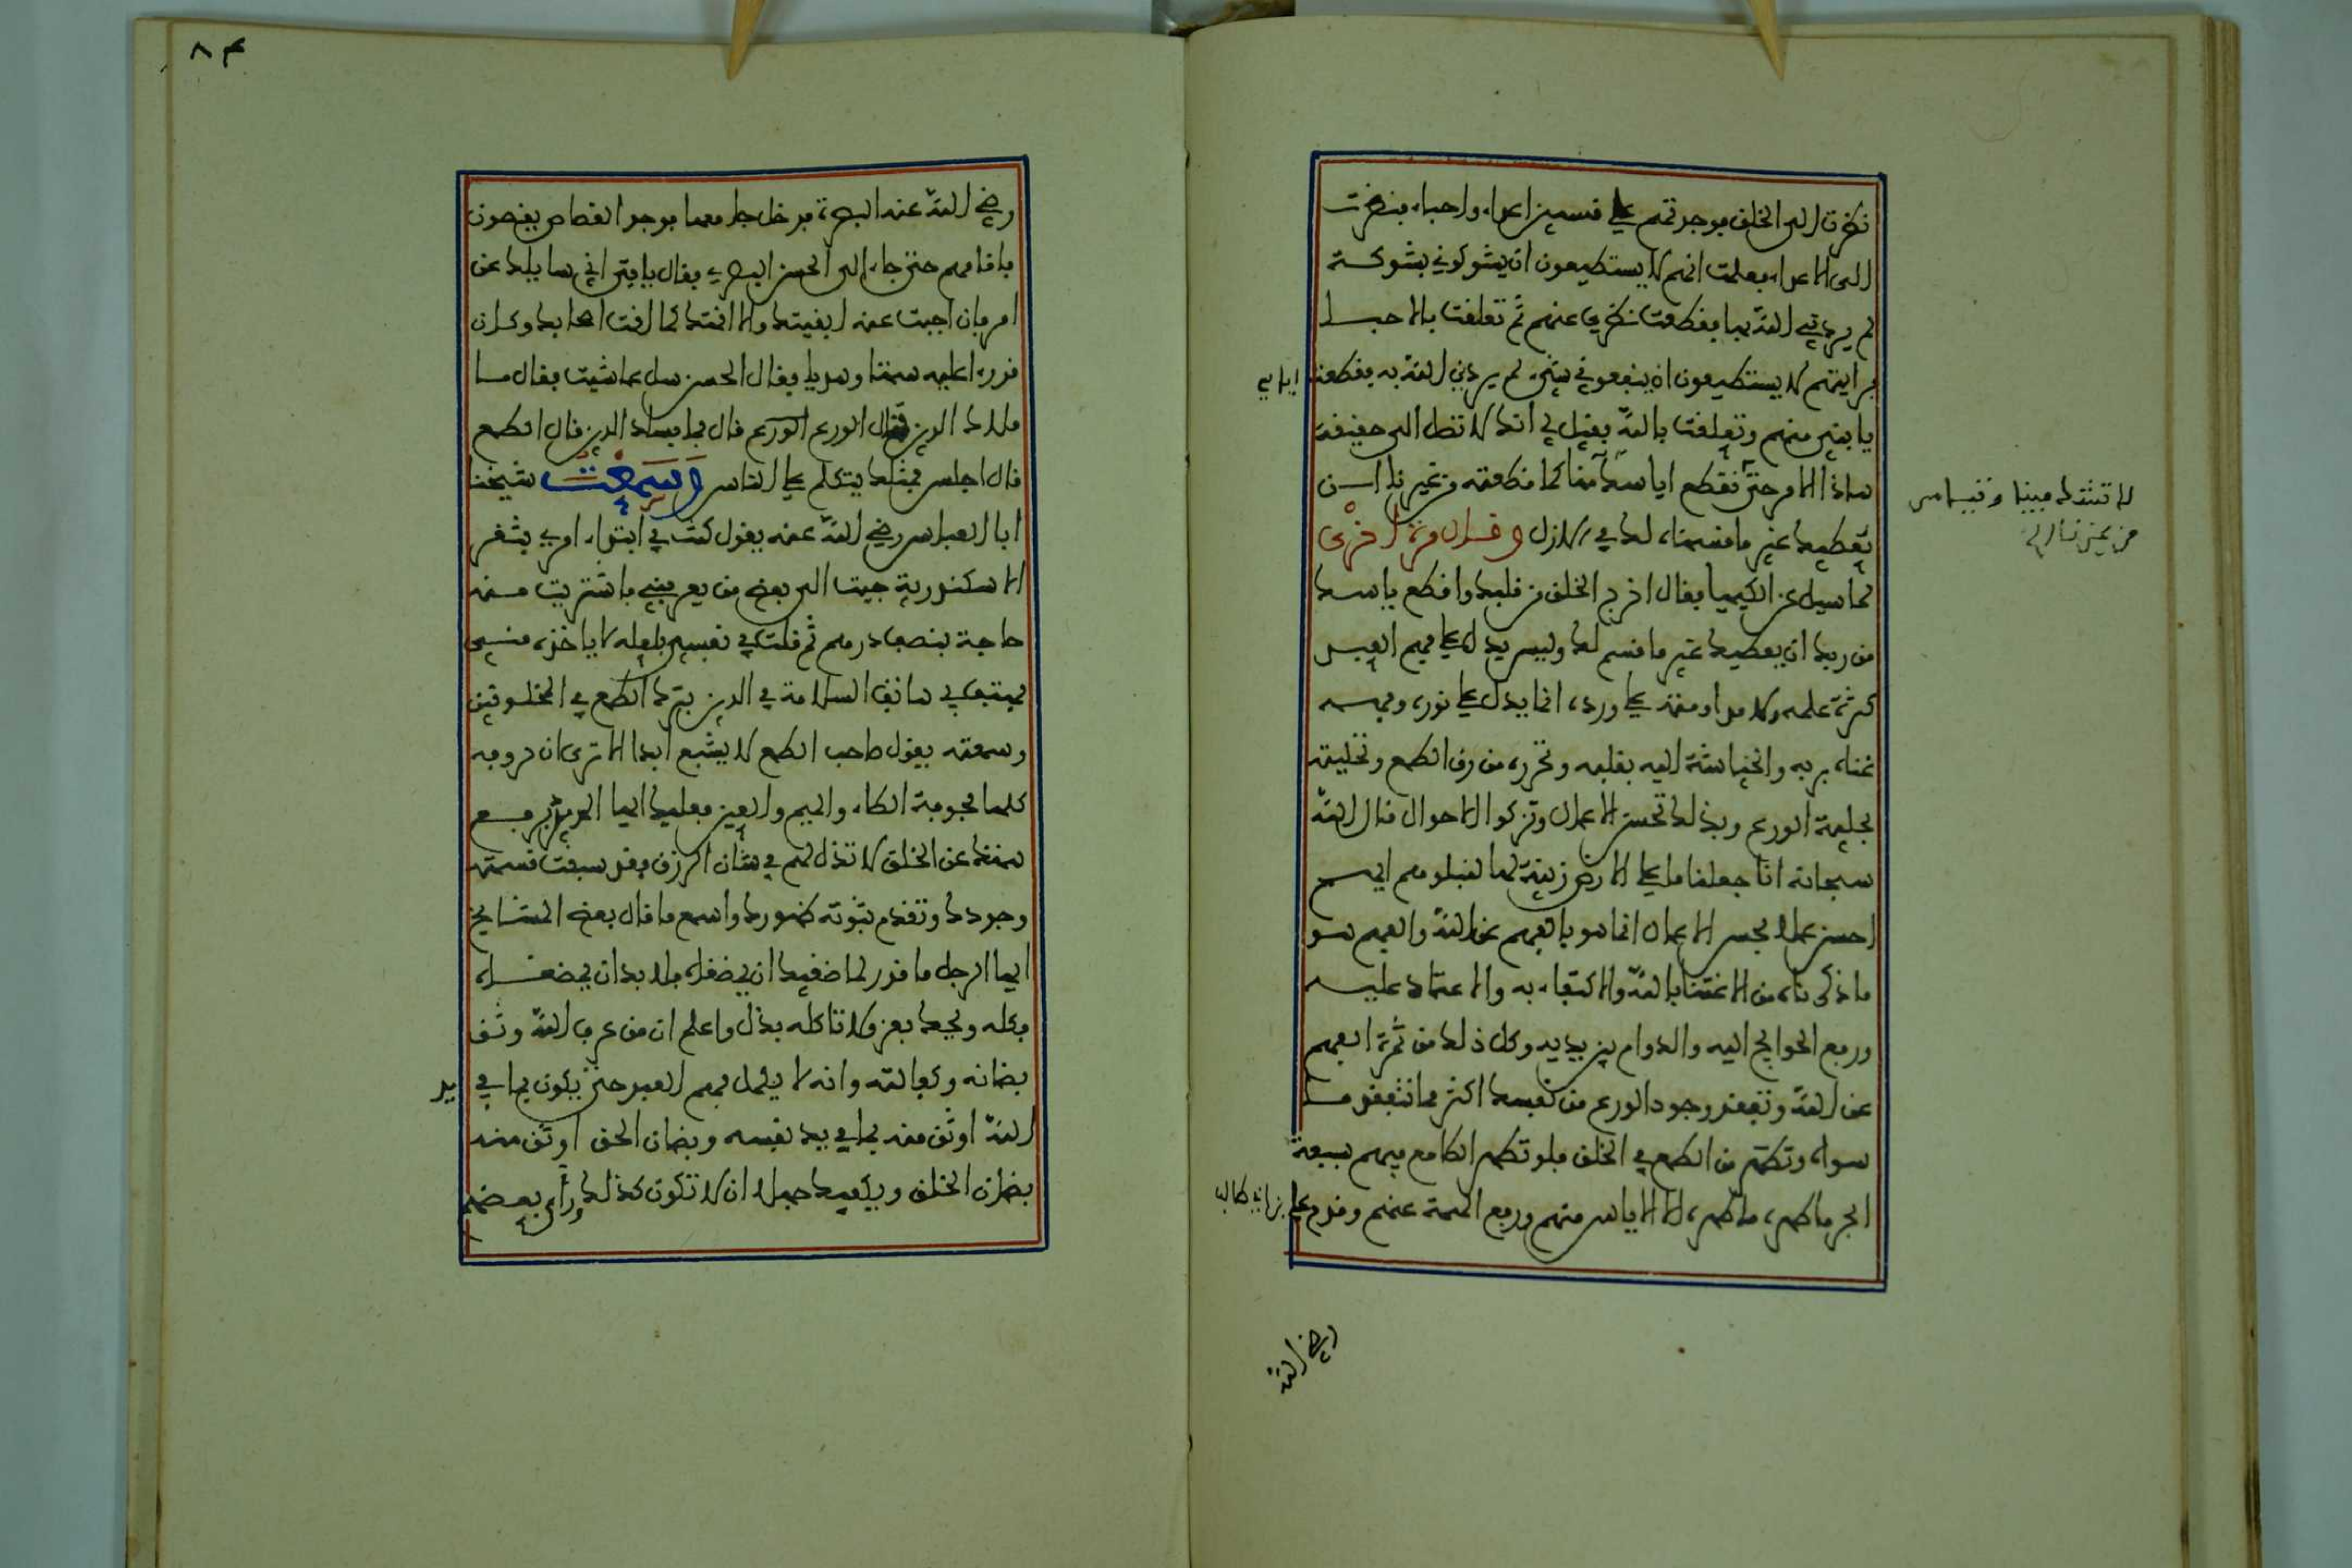 نظرت الى الخلق فوجدتهم على قسمين اعداء واحباء فنظرت
الى الاعداء فعلمت انهم لا يستطيعون ان يشوكوني بشوكة
لم يردني الله بها فقطعت نظري عنهم ثم تعلقت بالاحبا
فرايتهم لا يستطيعون ان ينفعوني بشيء لم يردني الله به فقطعت
اياسي
يا بني منهم وتعلقت بالله فقيل لي انك لا تصل الى حقيقة
هذا الامر حتى تقطع اياسك منا كما قطعته من غيرنا ان
نعطيك غير ما قسمناه لك في الازل وقال مرة اخرى
لا تشك فينا وتياس
من غيرنا
لما سيل عن الكيميا فقال اخرج الخلق من قلبك واقطع ياسك
من ربك ان يعطيك غير ما قسم لك وليس يدل على فهم العبد
كثرة علمه ولا مداومته على ورده انما يدل على نوره وفهمه
غناه بربه وانحياشه اليه بقلبه وتحرره من رق الطمع وتحليته
بحلية الورع وبذلك تحسن الاعمال وتزكوا الاحوال قال الله
سبحانه انا جعلنا ما على الارض زينة لها لنبلوهم ايهم
احسن عملا فحسن الاعمال انما هو بالفهم عن الله والفهم هو
ما ذكرناه من الاغتنا بالله والاكتفاء به والاعتماد عليه
ورفع الحوايج اليه والدوام بين يديه وكل ذلك من ثمرة الفهم
عن الله وتفقد وجود الورع من نفسك اكثر مما تتفقد ما
سواه وتطهر من الطمع في الخلق فلو تطهر الطامع فيهم بسبعة
ابحر ما طهره ما طهره الا الاياس منهم ورفع الهمة عنهم وقدم علي
بن ابي طالب
رضي الله
٨٤
رضي الله عنه البصرة فدخل جامعها فوجد القصاص يقصون
فاقامهم حتى جاء الى الحسن البصري فقال يا فتى اني سايلك عن
امر فان اجبت عنه ابقيتك والا اقمتك كما اقمت اصحابك وكان
قد رءا عليه سمتا وهديا فقال الحسن سل عما شيت فقال ما
ملاك الدين قال الورع قال فما فساد الدين قال الطمع
قال اجلس فمثلك يتكلم على الناس وسمعت شيخنا
ابا العباس رضي الله عنه يقول كنت في ابتداء امري بثغر
الاسكندرية جيت الى بعض من يعرفني فاشتريت منه
حاجة بنصف درهم ثم قلت في نفسي فلعله لا ياخذه مني
فهتف بي هاتف السلامة في الدين بترك الطمع في المخلوقين
وسمعته يقول صاحب الطمع لا يشبع ابدا الا ترى ان حروفه
كلها مجوفة الطاء والميم والعين فعليك ايها المريد برفع
همتك عن الخلق لا تذل لهم في شان الرزق فقد سبقت قسمته
وجودك وتقدم ثبوته ظهورك واسمع ما قال بعض المشايخ
ايها الرجل ما قدر لماضغيك ان يمضغاه فلا بد ان يمضغاه
فكله ويحك بعز ولا تاكله بذل واعلم ان من عرف الله وثق
بضمانه وكفالته وانه لا يكمل فهم العبد حتى يكون بما في
يد
الله اوثق منه بما في يد نفسه وبضمان الحق اوثق منه
بضمان الخلق ويكفيك جهلا ان لا تكون كذلك وراى بعضهم